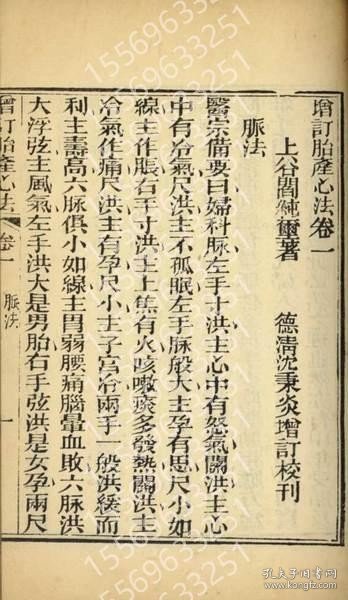 增訂胎產心法卷一
上谷閻純璽著 德清沈秉炎增訂校刊
脈法
醫宗備要曰婦科脈左手寸洪主心中有怒氣關洪主心
中有冷氣尺洪主不孤眠左手脈般大主孕有思尺小如
線主作脹右手寸洪主上焦有火咳嗽痰多發熱關洪主
冷氣作痛尺洪主有孕尺小主子宮冷兩手一般洪緩而
利主壽高六脈俱小如線主胃弱腰痛腦暈血敗六脈洪
大浮弦主風氣左手洪大是男胎右手弦洪是女孕兩尺
增訂胎產心法 卷一 脈法 一
15569633251
15569633251
15569633251
15569633251
孔夫子旧书网